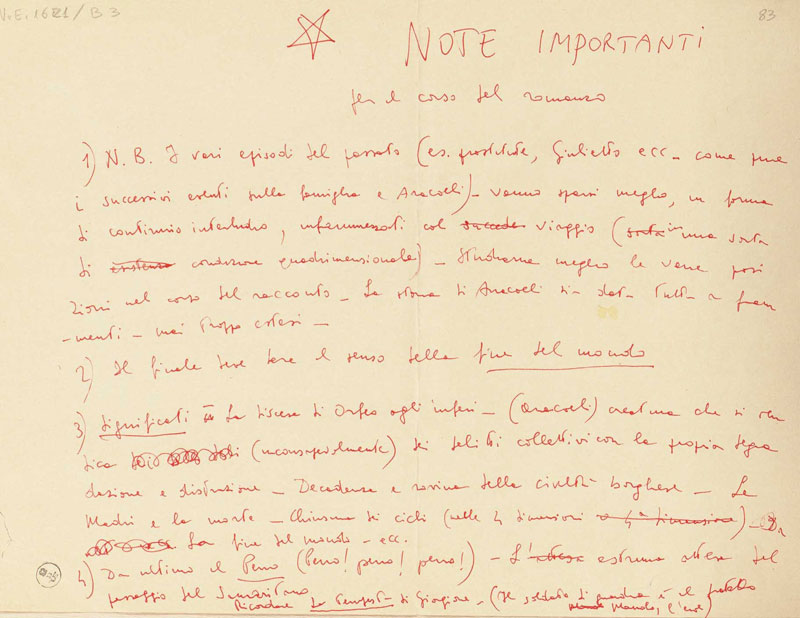 V.E. 1621/B3
83
NOTE IMPORTANTI
per il corso del romanzo
1) N.B. I vari episodi del passato (es. prostitute, Giulietto ecc - come pure
i successivi eventi sulla famiglia e Aracoeli) - vanno sparsi meglio, in forma
di continuo interludio, inframmezzati col succede viaggio (sorta in una sorta
di esistenza condizione quadrimensionale) - Studiarne meglio le varie posi
zioni nel corso del racconto - La storia di Aracoeli si- dat- tutta a fram
-menti - mai troppo estesi -
2) Il finale deve dare il senso della fine del mondo
3) Significati La discesa di Orfeo agli inferi - (Aracoeli) creatura che si ven
dica (inconsapevolmente) dei delitti collettivi con la propria degra
dazione e distruzione - Decadenza e rovina della civiltà borghese - Le
Madri e la morte - Chiusura dei cicli (nelle 4 dimensioni o 4a dimensione) -
La fine del mondo - ecc.
4) Da ultimo il Perro (Perro! perro! perro!) - L'attesa estrema attesa del
passaggio del Samaritano
Ricordare La Tempesta di Giorgione - (Il soldato di guardia è il fratello
Manuel, l'eroe)